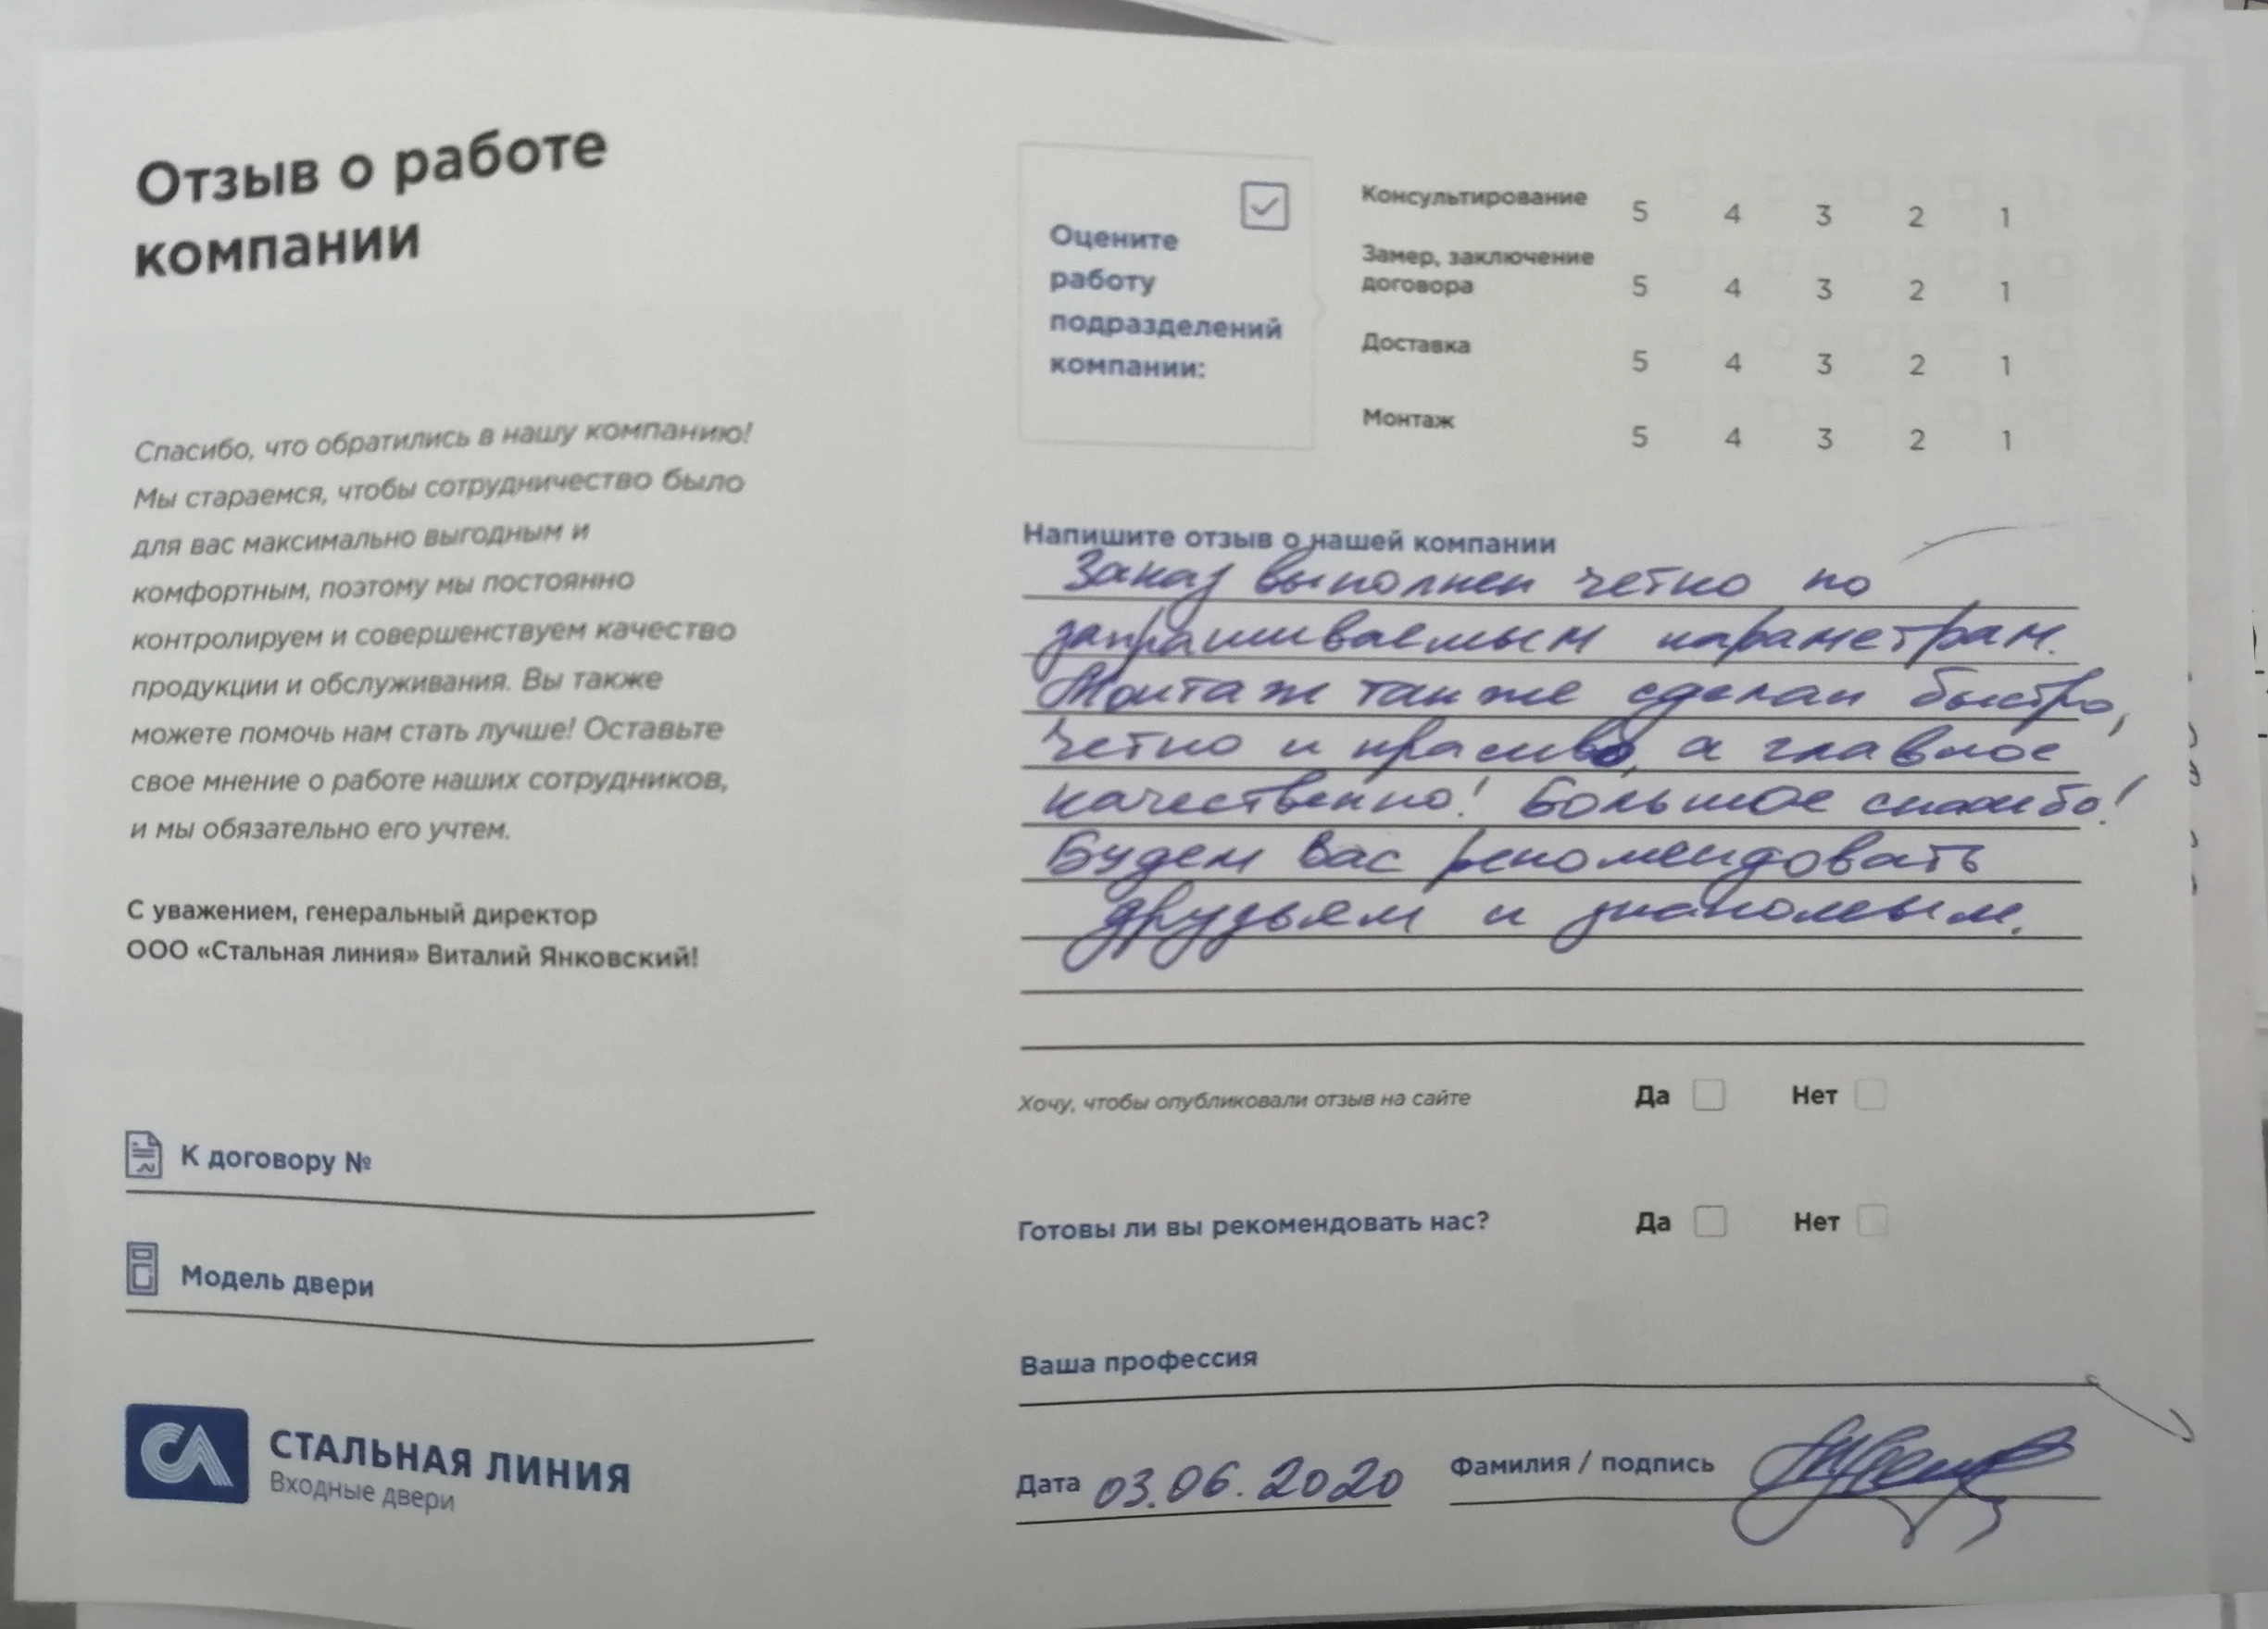 Отзыв о работе
компании
Спасибо, что обратились в нашу компанию!
Мы стараемся, чтобы сотрудничество было
для вас максимально выгодным и
комфортным, поэтому мы постоянно
контролируем и совершенствуем качество
продукции и обслуживания. Вы также
можете помочь нам стать лучше! Оставьте
свое мнение о работе наших сотрудников,
и мы обязательно его учтем.
С уважением, генеральный директор
ООО «Стальная линия» Виталий Янковский!
К договору №
Модель двери
СЛ
СТАЛЬНАЯ ЛИНИЯ
Входные двери
Оцените
работу
подразделений
компании:
Консультирование 5 4 3 2 1
Замер, заключение
договора 5 4 3 2 1
Доставка 5 4 3 2 1
Монтаж 5 4 3 2 1
Напишите отзыв о нашей компании
Заказ выполнен четко по
запрашиваемым параметрам.
Монтаж также сделан быстро,
четко и красиво, а главное
качественно! Большое спасибо!
Будем вас рекомендовать
друзьям и знакомым.
Хочу, чтобы опубликовали отзыв на сайте Да Нет
Готовы ли вы рекомендовать нас? Да Нет
Ваша профессия
Дата 03.06.2020 Фамилия / подпись